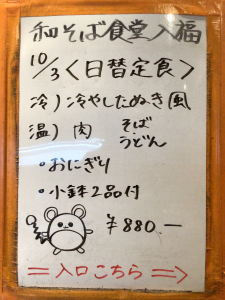 和そば食堂入福
10/3<日替定食>
冷)冷やしたぬき風
温)肉 そば うどん
・おにぎり
・小鉢2品付
¥880.—
=入口こちら=>